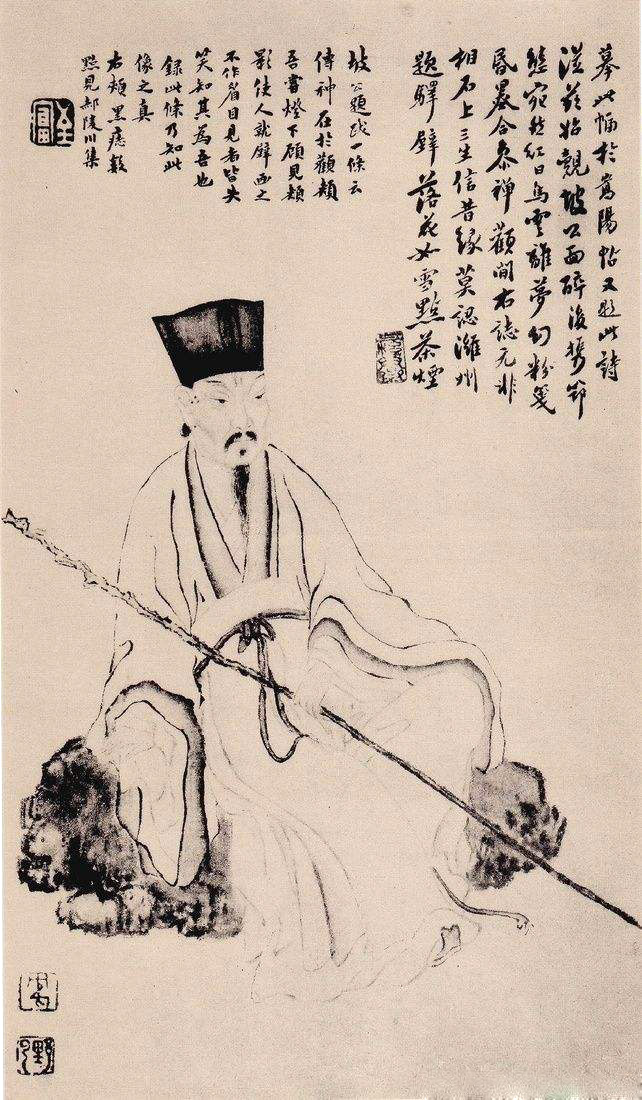 摹此幅於嵩陽帖又題此詩
從茲始覿坡公面醉後攜笻
態宛然紅日烏雲離夢幻粉箋
昏墨合參禪顴間右誌元非
相石上三生信昔緣莫認濰州
題驛壁落花如雪點茶煙
坡公題跋一條云
傳神在於顴頰
吾嘗燈下顧見頰
影使人就壁画之
不作眉目見者皆失
笑知其為吾也
錄此條乃知此
像之真
右頰黑痣數
點見郝陵川集